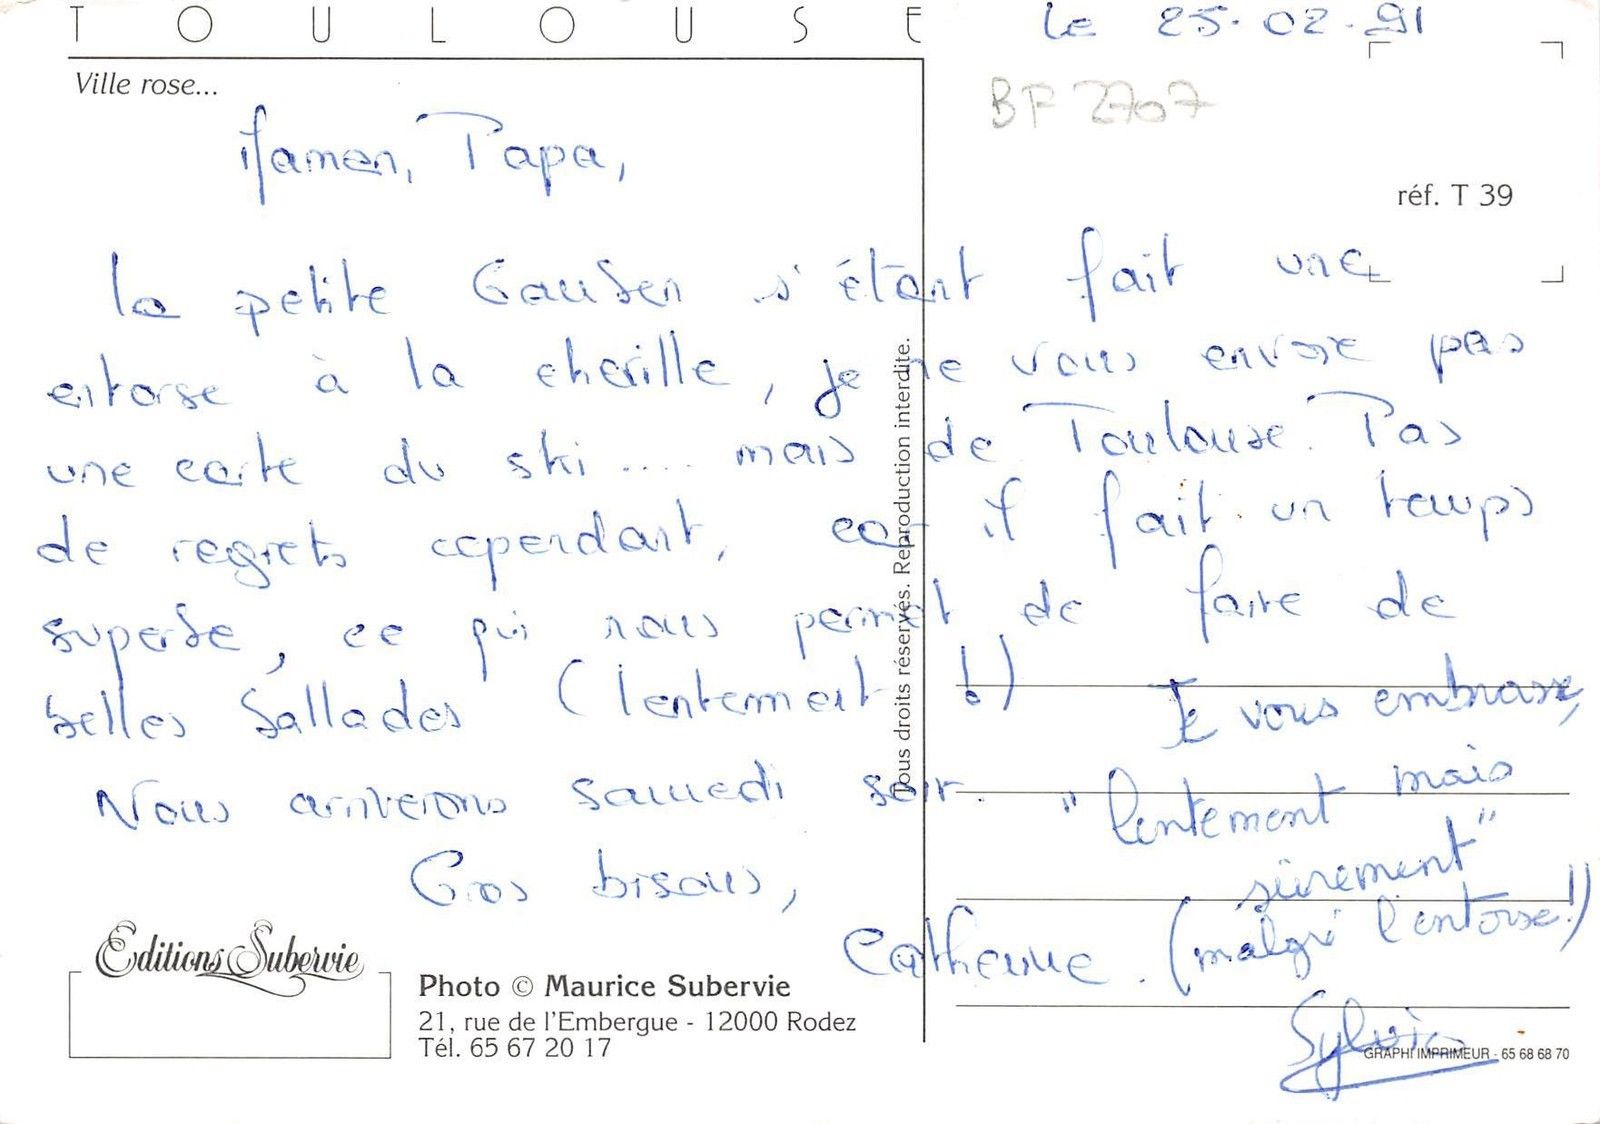 TOULOUSE
Ville rose...
le 25.02.91
BF 2707
réf. T 39
Maman, Papa,
La petite Gauben s'étant fait une
entorse à la cheville, je ne vous envoie pas
une carte du ski .... mais de Toulouse. Pas
de regrets cependant, car il fait un temps
superbe, ce qui nous permet de faire de
belles ballades (lentement !)
Nous arriverons samedi soir.
Gros bisous,
Catherine.
Je vous embrasse,
"lentement mais
sûrement"
(malgré l'entorse!!)
Sylvie
Tous droits réservés. Reproduction interdite.
Editions Subervie
Photo © Maurice Subervie
21, rue de l'Embergue - 12000 Rodez
Tél. 65 67 20 17
GRAPHI IMPRIMEUR - 65 68 68 70